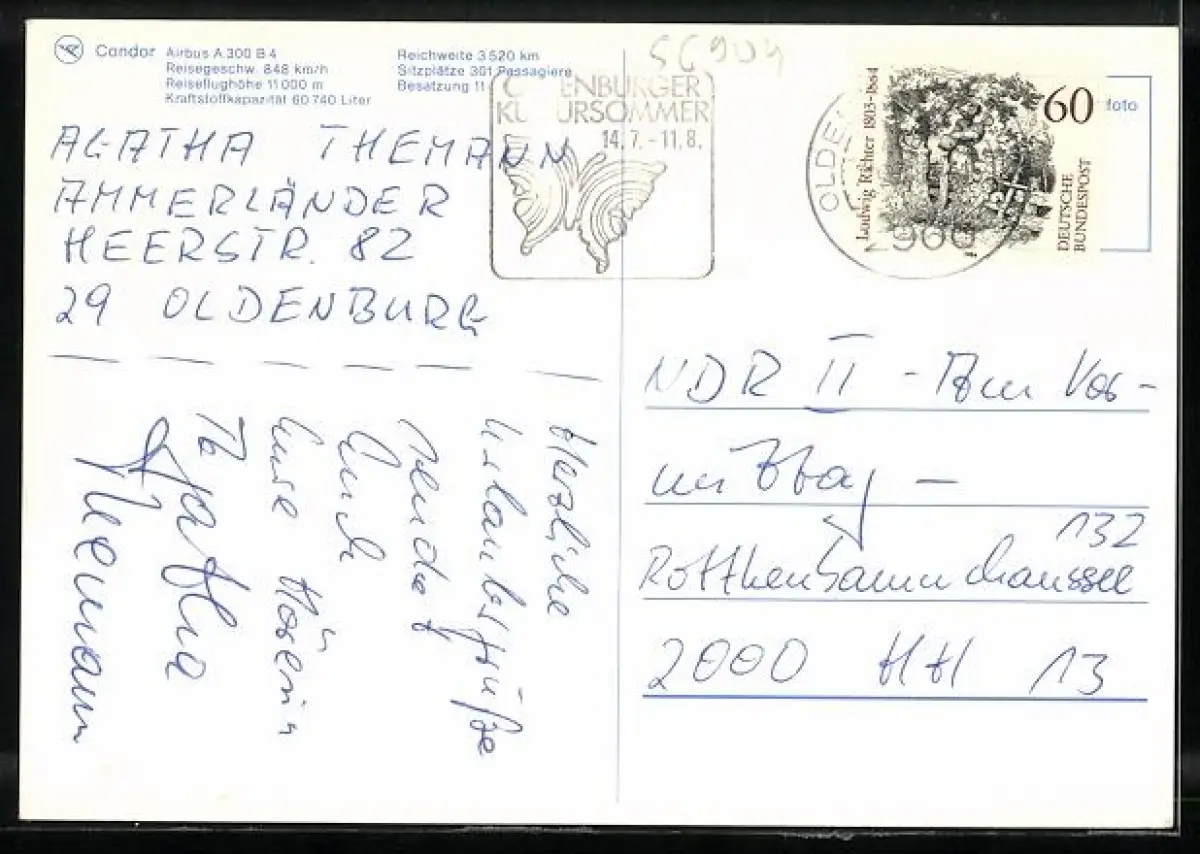 Condor
Airbus A 300 B 4
Reisegeschw. 848 km/h
Reiseflughöhe 11 000 m
Kraftstoffkapazität 60 740 Liter
Reichweite 3 520 km
Sitzplätze 301 Passagiere
Besatzung 11
AGATHA THEMANN
AMMERLÄNDER
HEERSTR. 82
29 OLDENBURG
Herzliche
Urlaubsgrüße
sendet
Euch
Eure Hörerin
Agatha
Themann
56904
OLDENBURGER
KULTURSOMMER
14.7.-11.8.
OLDE
2900
Ludwig Richter 1803-1884
60
DEUTSCHE
BUNDESPOST
foto
NDR II - Am Vor-
mittag -
132
Rothenbaumchaussee
2000 HH 13